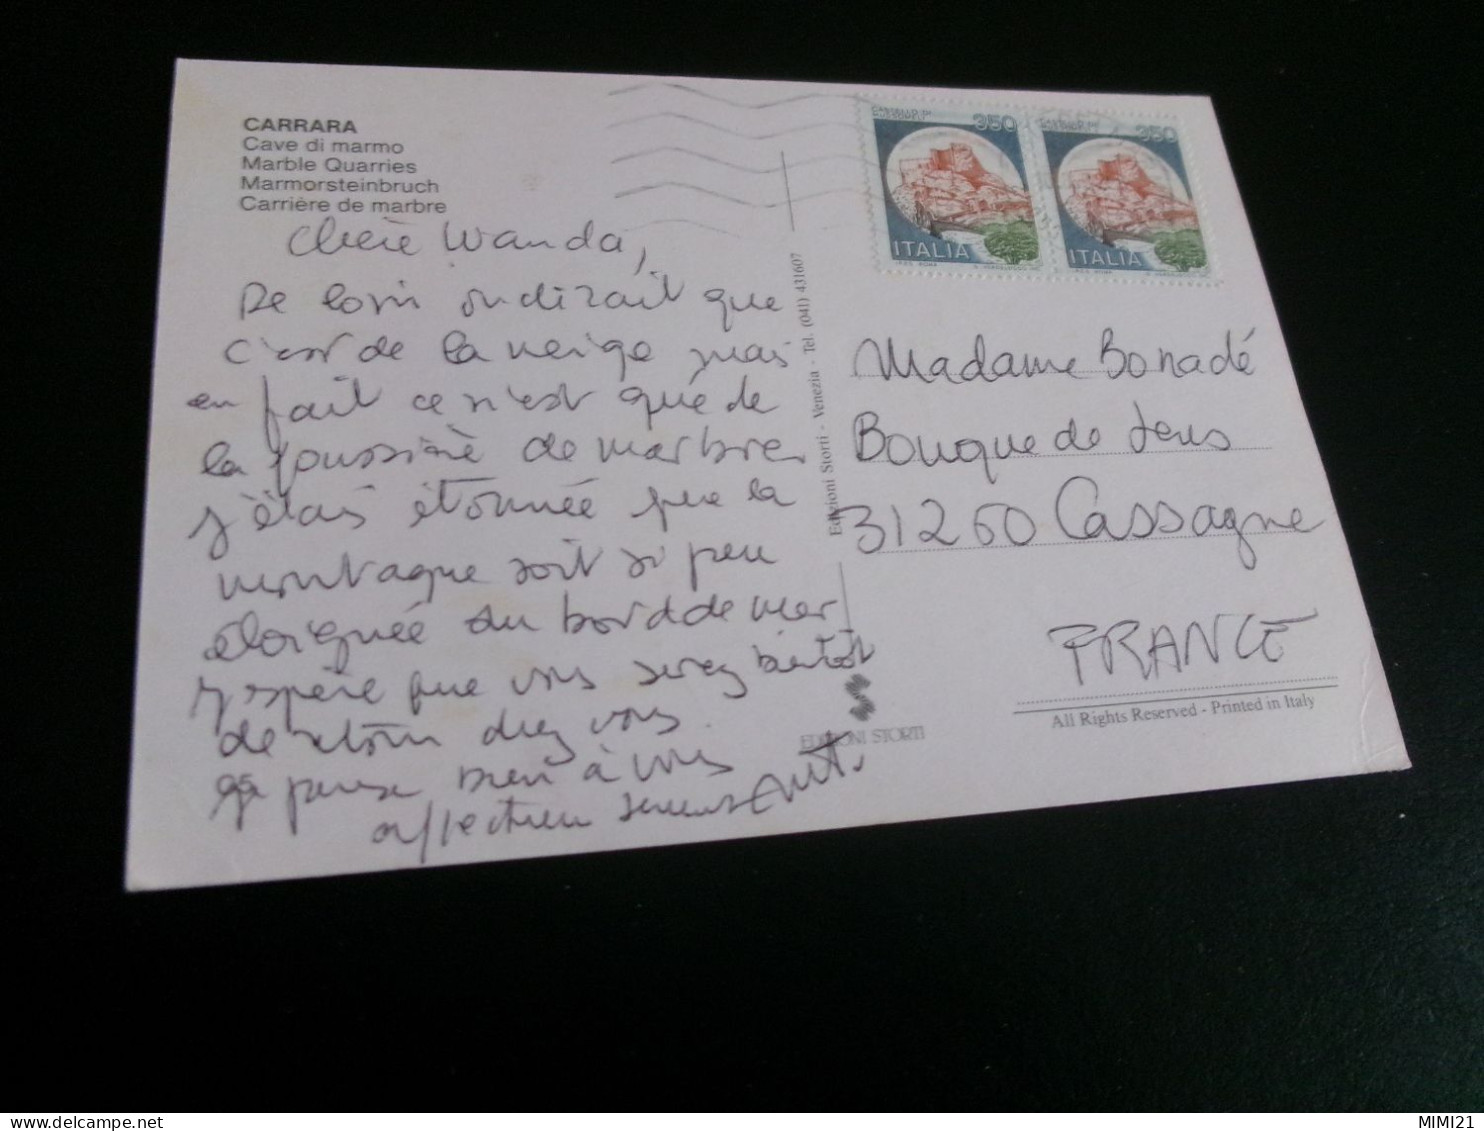 CARRARA
Cave di marmo
Marble Quarries
Marmorsteinbruch
Carrière de marbre
Chère Wanda,
De loin on dirait que
c'est de la neige mais
en fait ce n'est que de
la poussière de marbre
j'étais étonnée que la
montagne soit si peu
éloignée du bord de mer
J'espère que vous serez bientôt
de retour chez vous.
Je pense bien à vous
affectueusement
Edizioni Storti - Venezia - Tel. (041) 431607
EDIZIONI STORTI
350
ITALIA
350
ITALIA
Madame Bonadé
Bouque de Lens
31260 Cassagne
FRANCE
All Rights Reserved - Printed in Italy
MIMI21